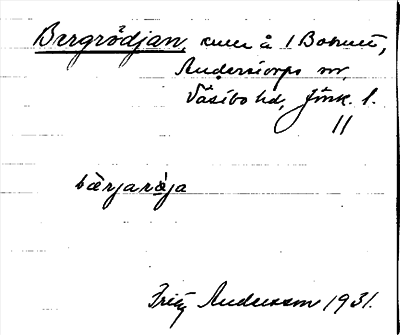 Bergrödjan,           å 1 Bohult,
Anderstorps sn,
Västbo hd, Jönk. l.
11
bærjaræja
Fritz Andersson 1931.